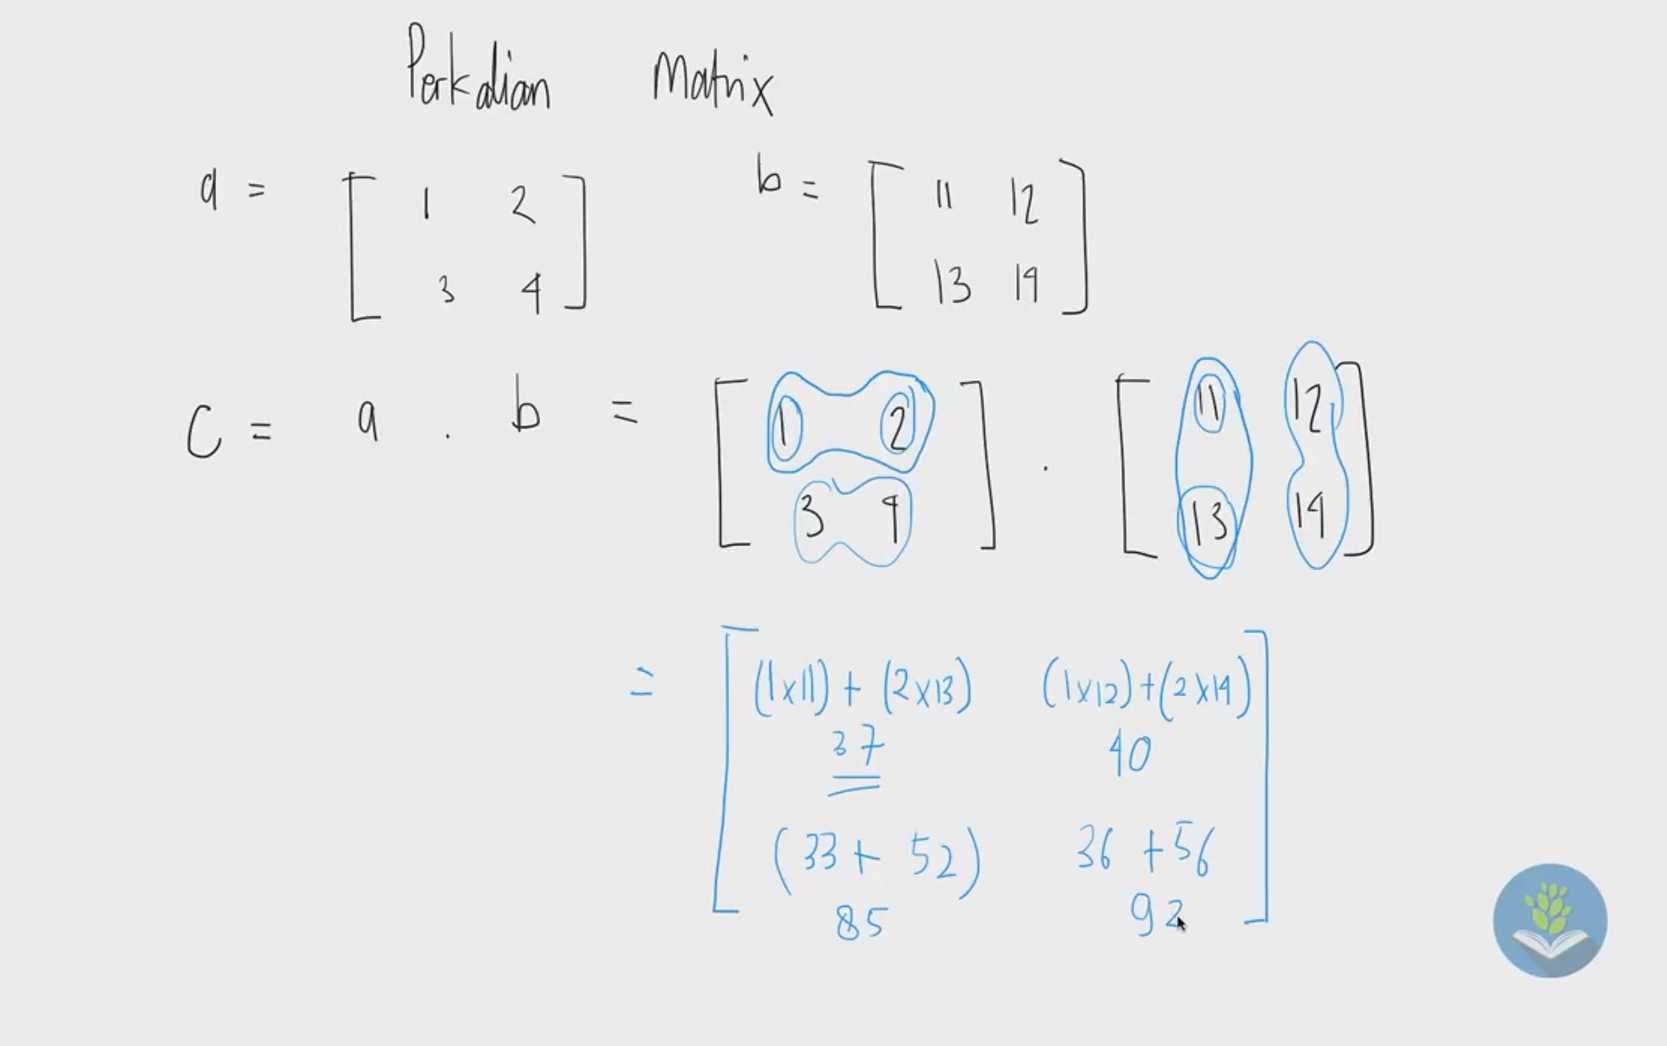 Perkalian Matrix
a = [ 1 2 ] b = [ 11 12 ]
[ 3 4 ] [ 13 14 ]
C = a . b = [ 1 2 ] . [ 11 12 ]
[ 3 4 ] [ 13 14 ]
= [ (1x11) + (2x13) (1x12)+(2x14) ]
37 40
(33+ 52) 36 +56
85 92